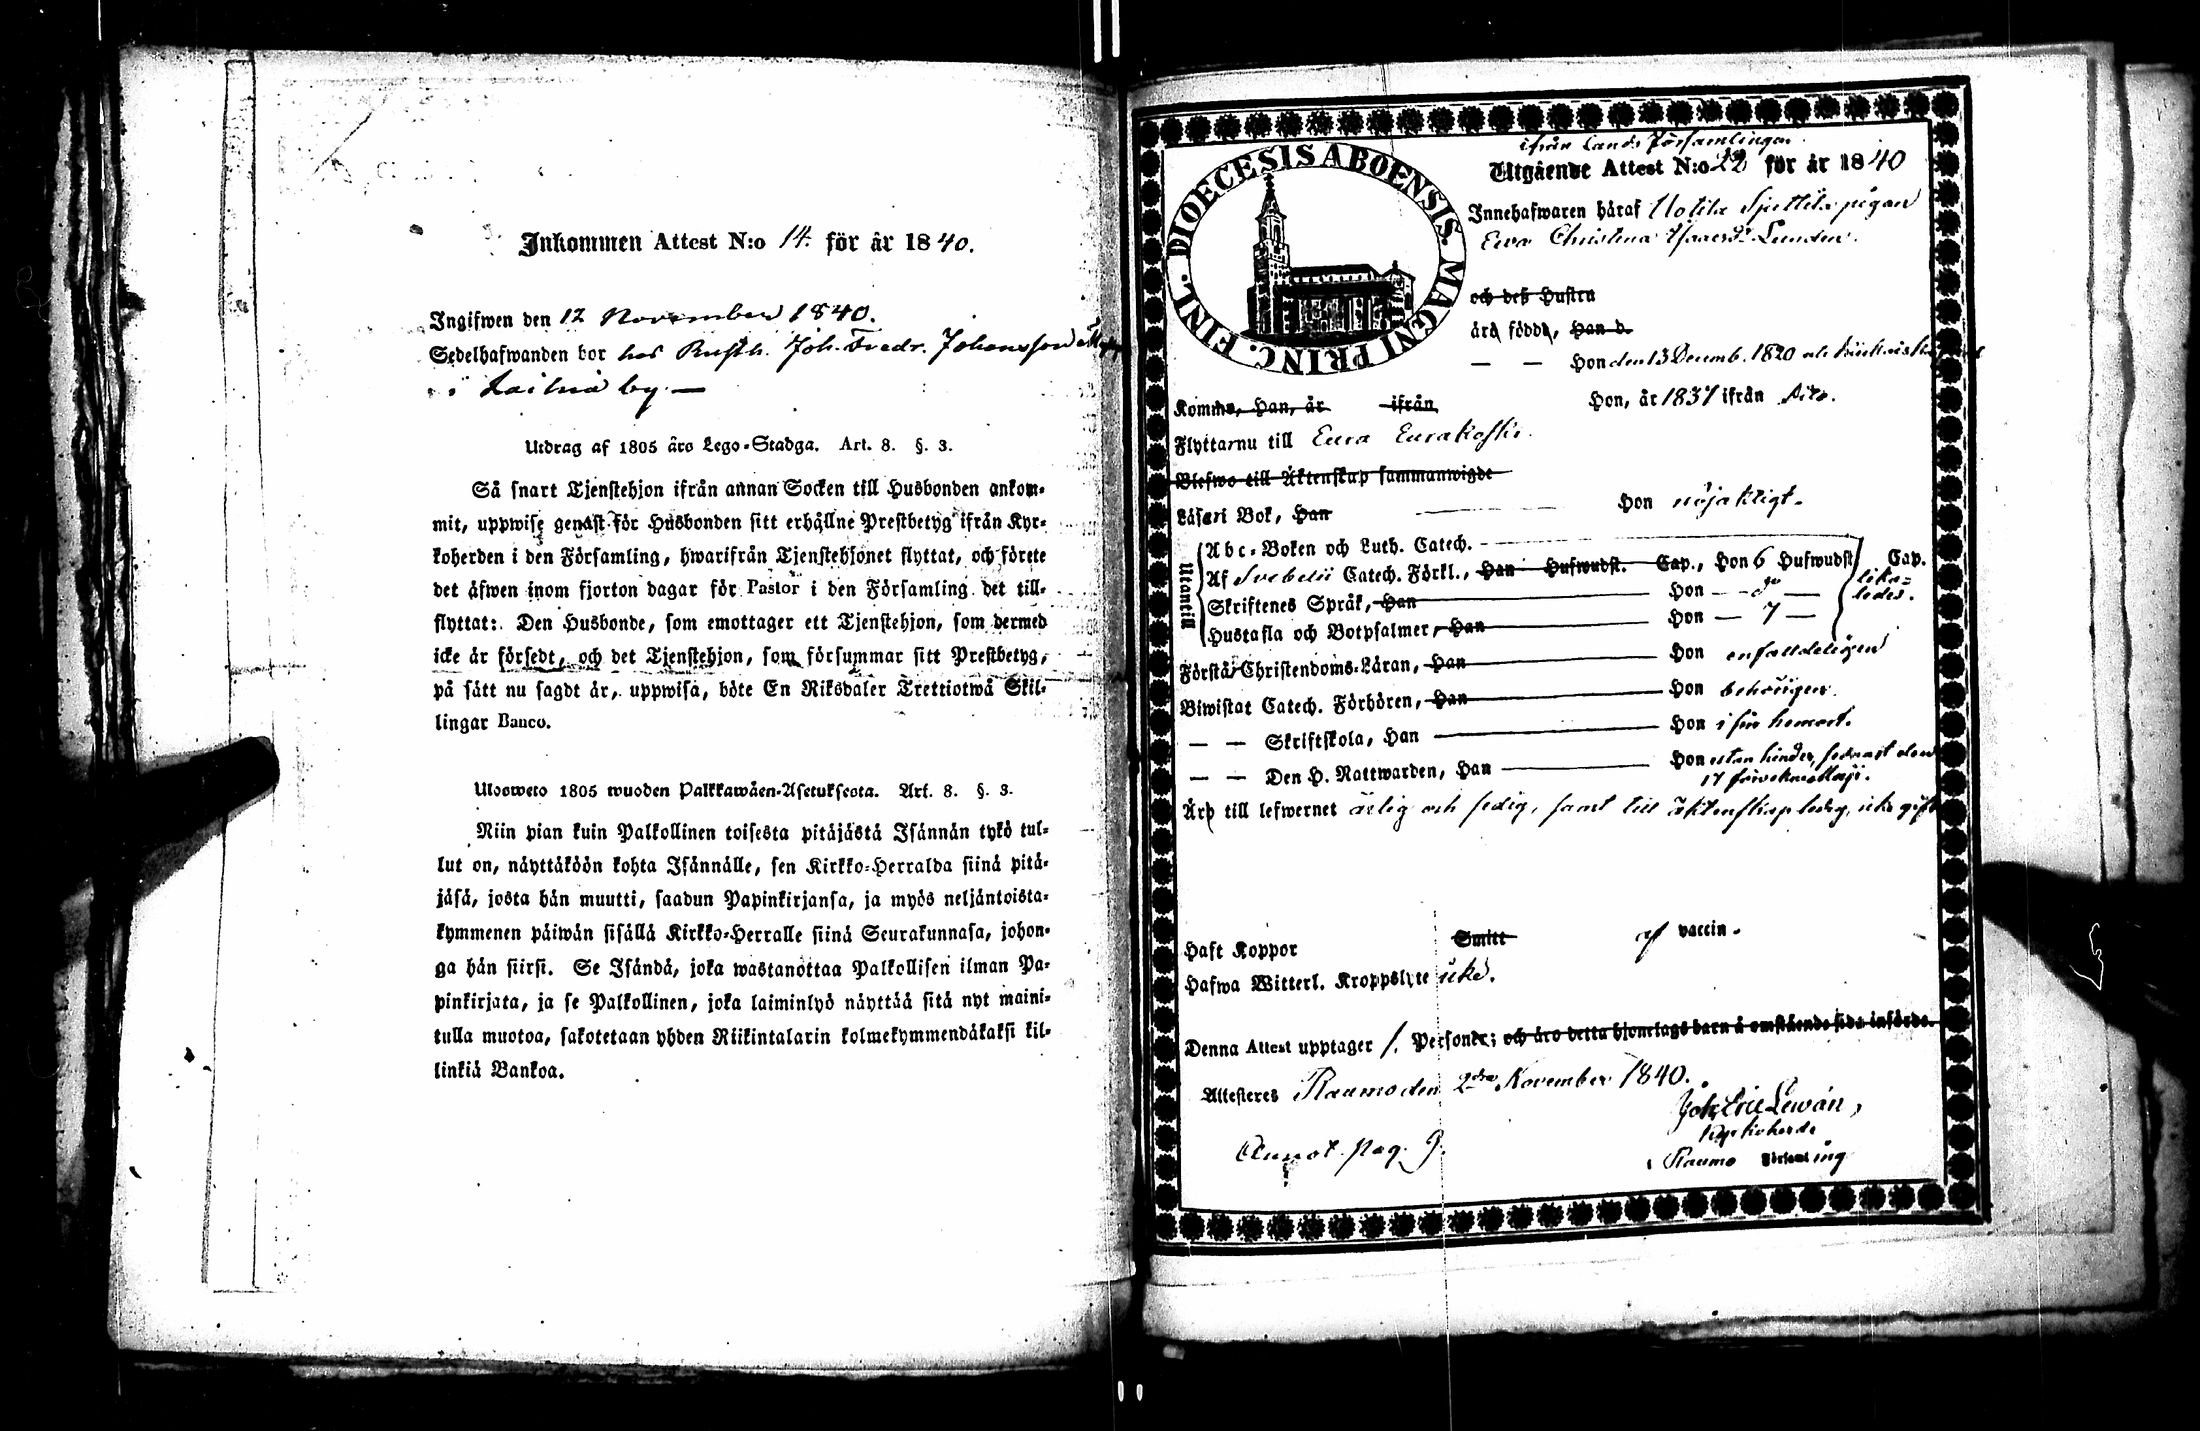 Inkommen Attest N:o 14. för år 1840.
Ingifwen den 12 November 1840.
Sedelhafwanden bor hos Rusth. Joh. Fredr. Johansson
i Laihia by. —
Utdrag af 1805 års Lego-Stadga. Art. 8. §. 3.
Så snart Tjenstehjon ifrån annan Socken till Husbonden ankom-
mit, uppwise genast för Husbonden sitt erhållne Prestbetyg ifrån Kyr-
koherden i den Församling, hwarifrån Tjenstehjonet flyttat, och förete
det äfwen inom fjorton dagar för Pastor i den Församling det till-
flyttat: Den Husbonde, som emottager ett Tjenstehjon, som dermed
icke är försedt, och det Tjenstehjon, som försummar sitt Prestbetyg,
på sätt nu sagdt är, uppwisa, böte En Riksdaler Trettiotwå Skil-
lingar Banco.
Uloswето 1805 wuoden Palkkawäen-Asetuksesta. Art. 8. §. 3.
Niin pian kuin Palkollinen toisesta pitäjästä Isännän tykö tul-
lut on, näyttäköön kohta Isännälle, sen Kirkko-Herralda siinä pitä-
jäsä, josta hän muutti, saadun Papinkirjansa, ja myös neljäntoista-
kymmenen päiwän sisällä Kirkko-Herralle siinä Seurakunnasa, johon-
ga hän siirsi. Se Isändä, joka wastanottaa Palkollisen ilman Pa-
pinkirjata, ja se Palkollinen, joka laiminlyö näyttää sitä nyt maini-
tulla muotoa, sakotetaan yhden Riikintalarin kolmekymmendäkaksi kil-
linkiä Bankoa.
DIOECESIS ABOENSIS. MAGNI PRINC. FINL.
ifrån Lands Församlingen
Utgående Attest N:o 22 för år 1840
Innehafwaren häraf Uotila Spettilä pigan
Ewa Christina Lunden.
och deß Hustru
äro födde, Han d.
— — Hon den 13 Decemb. 1820
Komne, Han, år ifrån Hon, år 1837 ifrån Dito.
Flyttar nu till Eura Eurakoski.
Blefwo till Äktenskap sammanwigde
Läser i Bok, Han Hon nöjaktigt.
Utantill
Abc-Boken och Luth. Catech.
Af Svebelii Catech. Förkl., Han Hufwudst. Cap., Hon 6 Hufwudst. Cap.
Skriftenes Språk, Han Hon
lika-
ledes.
Hustafla och Botpsalmer, Han Hon
Förstår Christendoms-Läran, Han Hon enfaldeligen
Biwistat Catech. Förhören, Han Hon behörigen
— — Skriftskola, Han Hon i sin hemort.
— — Den H. Nattwarden, Han Hon utan hinder, sednast den
17
Är till lefwernet ärlig och sedig, samt till äktenskap ledig, icke gift
Haft Koppor Smitt af vaccin.
Hafwa Witterl. Kroppslyte icke.
Denna Attest upptager 1. Personer; och äro detta hjonelags barn å omstående sida införda.
Attesteres Raumo den 2dra November 1840.
Joh. Eric Lewan,
Kyrkoherde
i Raumo Församling
Annot. pag. 9.